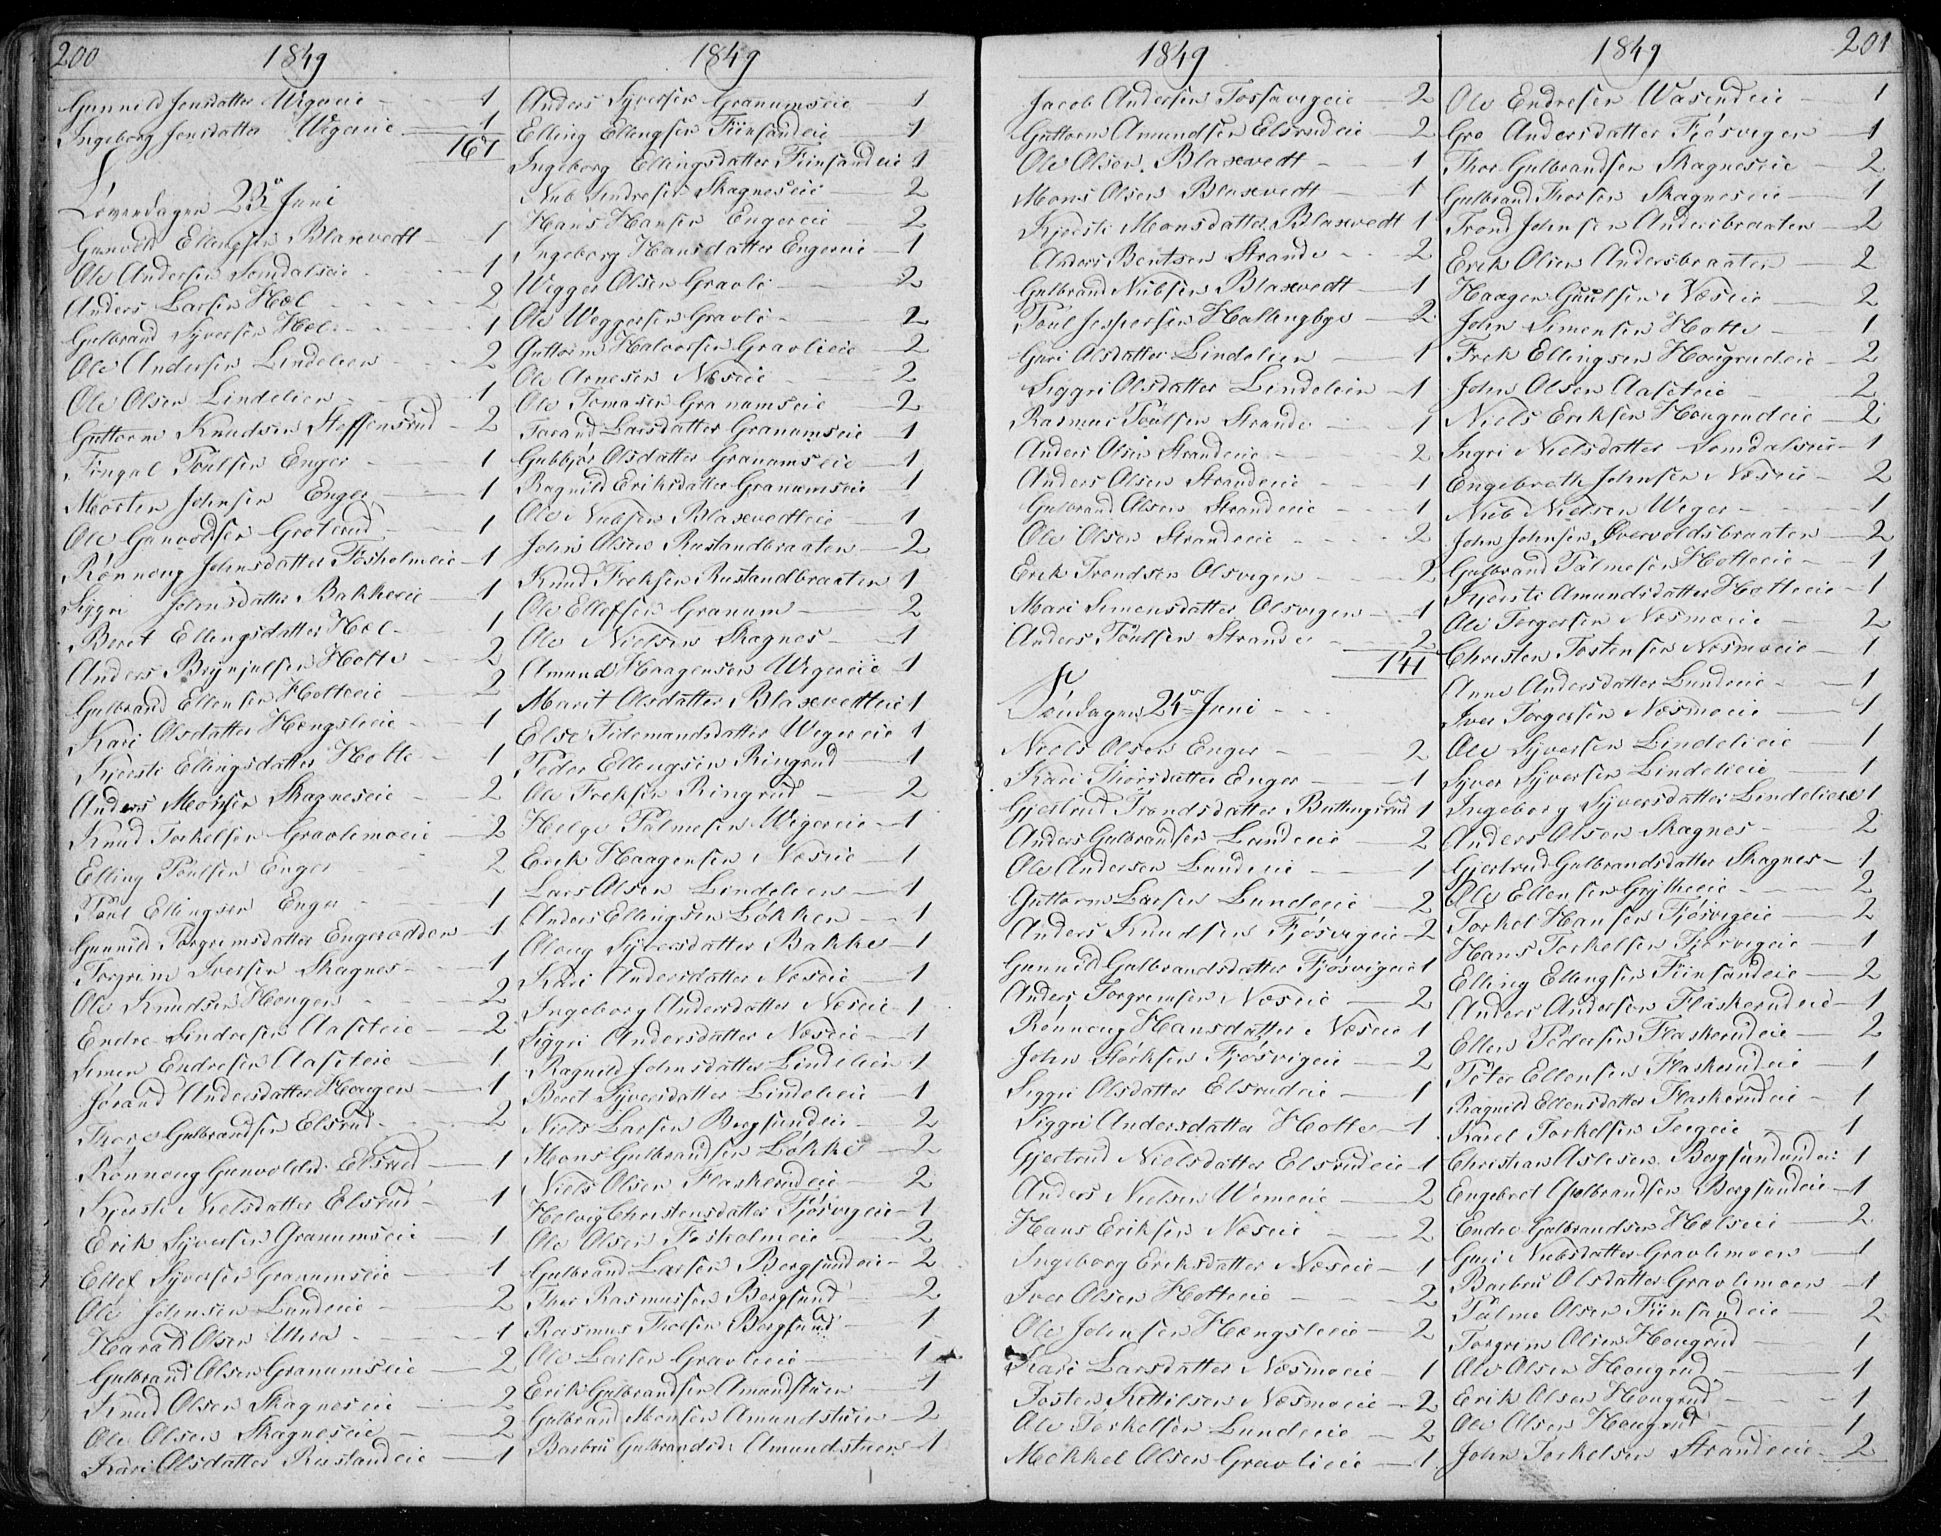 200
1849
Gunnild Jensdatter Wigereie 1
Ingeborg Jensdatter Wigereie 1
167
Løverdagen 23de Juni
Gunvold Ellingsen Blaxevedt 1
Ole Andersen Semdalseie 1
Anders Larsen Hæl 2
Gulbrand Syversen Hæl 1
Ole Andersen Lindelien 2
Ole Olsen Lindelien 1
Guttorm Knudsen Steffensrud 2
Fingal Poulsen Enger 1
Mosten Johnsen Enger 1
Ole Gunvoldsen Groterud 1
Rønnoug Johnsdatter Fosholmeie 1
Siggri Johnsdatter Bakkeeie 1
Beret Ellingsdatter Hæl 1
Anders Brynjulsen Holte 2
Gulbrand Ellensen Holteeie 2
Kari Olsdatter Hængsleeie 1
Kjersti Ellingsdatter Holte 1
Anders Monsen Skagneseie 2
Knud Torkelsen Gravlimoeie 2
Elling Poulsen Enger 2
Poul Ellingsen Enger 1
Gunnild Torgrimsdatter Engerodden 1
Torgrim Iversen Skagnes 1
Ole Knudsen Hougen 2
Endre Endresen Aaseteie 2
Simen Endresen Aaseteie 1
Jørand Andersdatter Hougen 1
Thore Gulbrandsen Elsrud 2
Rønnoug Gunvoldsd: Elsrud 1
Kjersti Nielsdatter Elsrud 1
Erik Syversen Granumseie 1
Ellef Syversen Granumseie 1
Ole Johnsen Lundeeie 2
Harald Olsen Uhra 1
Gulbrand Olsen Granumseie 2
Knud Olsen Skagneseie 2
Ole Olsen Skagneseie 2
Kari Olsdatter Rustandeie 1
1849
Anders Syversen Granumseie 1
Elling Ellingsen Fiinsandeie 1
Ingeborg Ellingsdatter Fiinsandeie 1
Nub Endresen Skagneseie 2
Hans Hansen Engereie 2
Ingeborg Hansdatter Engereie 1
Wegger Olsen Gravli 2
Ole Weggersen Gravli 2
Guttorm Halvorsen Gravlieie 2
Ole Arnesen Næseie 2
Ole Tomasen Granumseie 2
Jørand Larsdatter Granumseie 1
Gubbjør Olsdatter Granumseie 1
Ragnild Eriksdatter Granumseie 1
Ole Nubsen Blaxevedteie 1
John Olsen Rustandbraaten 2
Knud Freksen Rustandbraaten 1
Ole Ellefsen Granum 2
Ole Nielsen Skagnes 1
Amund Haagensen Wigereie 1
Marit Olsdatter Blaxevedteie 1
Else Tidemandsdatter Wigereie 1
Peder Ellingsen Ringrud 1
Ole Freksen Ringrud 2
Helge Palmesen Wigereie 1
Erik Haagensen Næseie 1
Lars Olsen Lindelien 1
Anders Ellingsen Løkken 1
Oloug Syversdatter Bakke 1
Kari Andersdatter Næseie 1
Ingeborg Andersdatter Næseie 1
Siggri Andersdatter Næseie 1
Ragnild Johnsdatter Lindelien 1
Beret Syversdatter Lindelieie 1
Niels Larsen Bergsundeie 2
Mons Gulbrandsen Løkke 2
Niels Olsen Flaskerudeie 2
Helvig Christensdatter Fjøsvigeie 1
Ole Olsen Fosholmeie 2
Gulbrand Larsen Bergsundeie 2
Thor Rasmussen Bergsund 2
Rasmus Troelsen Bergsund 1
Ole Larsen Gravlieie 1
Erik Gulbrandsen Amundstuen 1
Gulbrand Monsen Amundstuen 2
Barbru Gulbrandsd: Amundstuen 1
1849
Jacob Andersen Fossavigeie 2
Guttorm Amundsen Elsrudeie 2
Ole Olsen Blaxevedt 1
Mons Olsen Blaxevedt 1
Kjersti Monsdatter Blaxevedt 1
Anders Bentsen Strande 2
Gulbrand Nubsen Blaxevedt 1
Poul Jespersen Hallingbye 2
Guri Olsdatter Lindelien 1
Siggri Olsdatter Lindelien 1
Rasmus Poulsen Strande 1
Anders Olsen Strandeie 2
Anders Olsen Strandeie 1
Gulbrand Olsen Strandeie 1
Ole Olsen Strandeie 2
Erik Trondsen Olsvigen 2
Mari Simensdatter Olsvigen 1
Anders Poulsen Strande 2
141
Søndagen 24de Juni
Niels Olsen Enger 2
Kari Thorsdatter Enger 1
Gjertrud Trondsdatter Buttingsrud 1
Anders Gulbrandsen Lundeeie 2
Ole Andersen Lundeeie 1
Guttorm Larsen Lundeeie 2
Anders Knudsen Fjøsvigeie 2
Gunnild Gulbrandsdatter Fjøsvigeie 1
Anders Torgrimsen Næseie 2
Rønnoug Hansdatter Næseie 1
John Størksen Fjøsvigeie 2
Siggri Olsdatter Elsrudeie 1
Siggri Andersdatter Holte 1
Gjertrud Nielsdatter Elsrudeie 1
Anders Nielsen Wemeeie 2
Hans Eriksen Næseie 2
Ingeborg Eriksdatter Næseie 1
Iver Olsen Holteeie 2
Ole Johnsen Hængsleeie 2
Kari Larsdatter Næsmoeie 1
Tosten Kittilsen Næsmoeie 2
Ole Torkelsen Lundeeie 2
Mekkel Olsen Gravlieie 1
201
1849
Ole Endresen Wasendeie 1
Gro Andersdatter Fjøsvigen 1
Thor Gulbrandsen Skagneseie 2
Gulbrand Thorsen Skagneseie 1
Trond Johnsen Andersbraaten 2
Erik Olsen Andersbraaten 2
Haagen Guulsen Næseie 2
John Simensen Holte 1
Frek Ellingsen Hougrudeie 2
John Olsen Aaseteie 2
Niels Eriksen Hougrudeie 2
Ingri Nielsdatter Semdalseie 1
Engebreth Johnsen Næseie 2
Nub Nielsen Weger 1
John Johnsen Øvervoldsbraaten 2
Gulbrand Palmesen Holteeie 1
Kjersti Amundsdatter Holteeie 1
Ole Torgersen Næsmoeie 2
Christen Tostensen Næsmoeie 1
Anne Andersdatter Lundeeie 1
Iver Torgersen Næsmoeie 1
Ole Syversen Lindelieie 1
Syver Syversen Lindelieie 1
Ingeborg Syversdatter Lindelieie 1
Anders Olsen Skagnes 2
Gjertrud Gulbrandsdatter Skagnes 1
Ole Ellensen Grytheeie 2
Torkel Hansen Fjøsvigeie 2
Hans Torkelsen Fjøsvigeie 1
Elling Ellingsen Fiinsandeie 2
Anders Andersen Flaskerudeie 1
Ellen Pedersen Flaskerudeie 2
Peter Ellensen Flaskerudeie 1
Ragnild Ellensdatter Flaskerudeie 1
Karel Torkelsen Teigeie 1
Christian Aslesen Bergsundeie 1
Engebret Gulbrandsen Bergsundeie 1
Endre Gulbrandsen Hælseie 2
Guri Nubsdatter Gravlimoen 1
Barbru Olsdatter Gravlimoen 1
Palme Olsen Fiinsandeie 2
Torgrim Olsen Hougrud 1
Ole Olsen Hougrud 1
Erik Olsen Hougrud 1
Ole Olsen Hougrud 1
John Torkelsen Strandeie 2